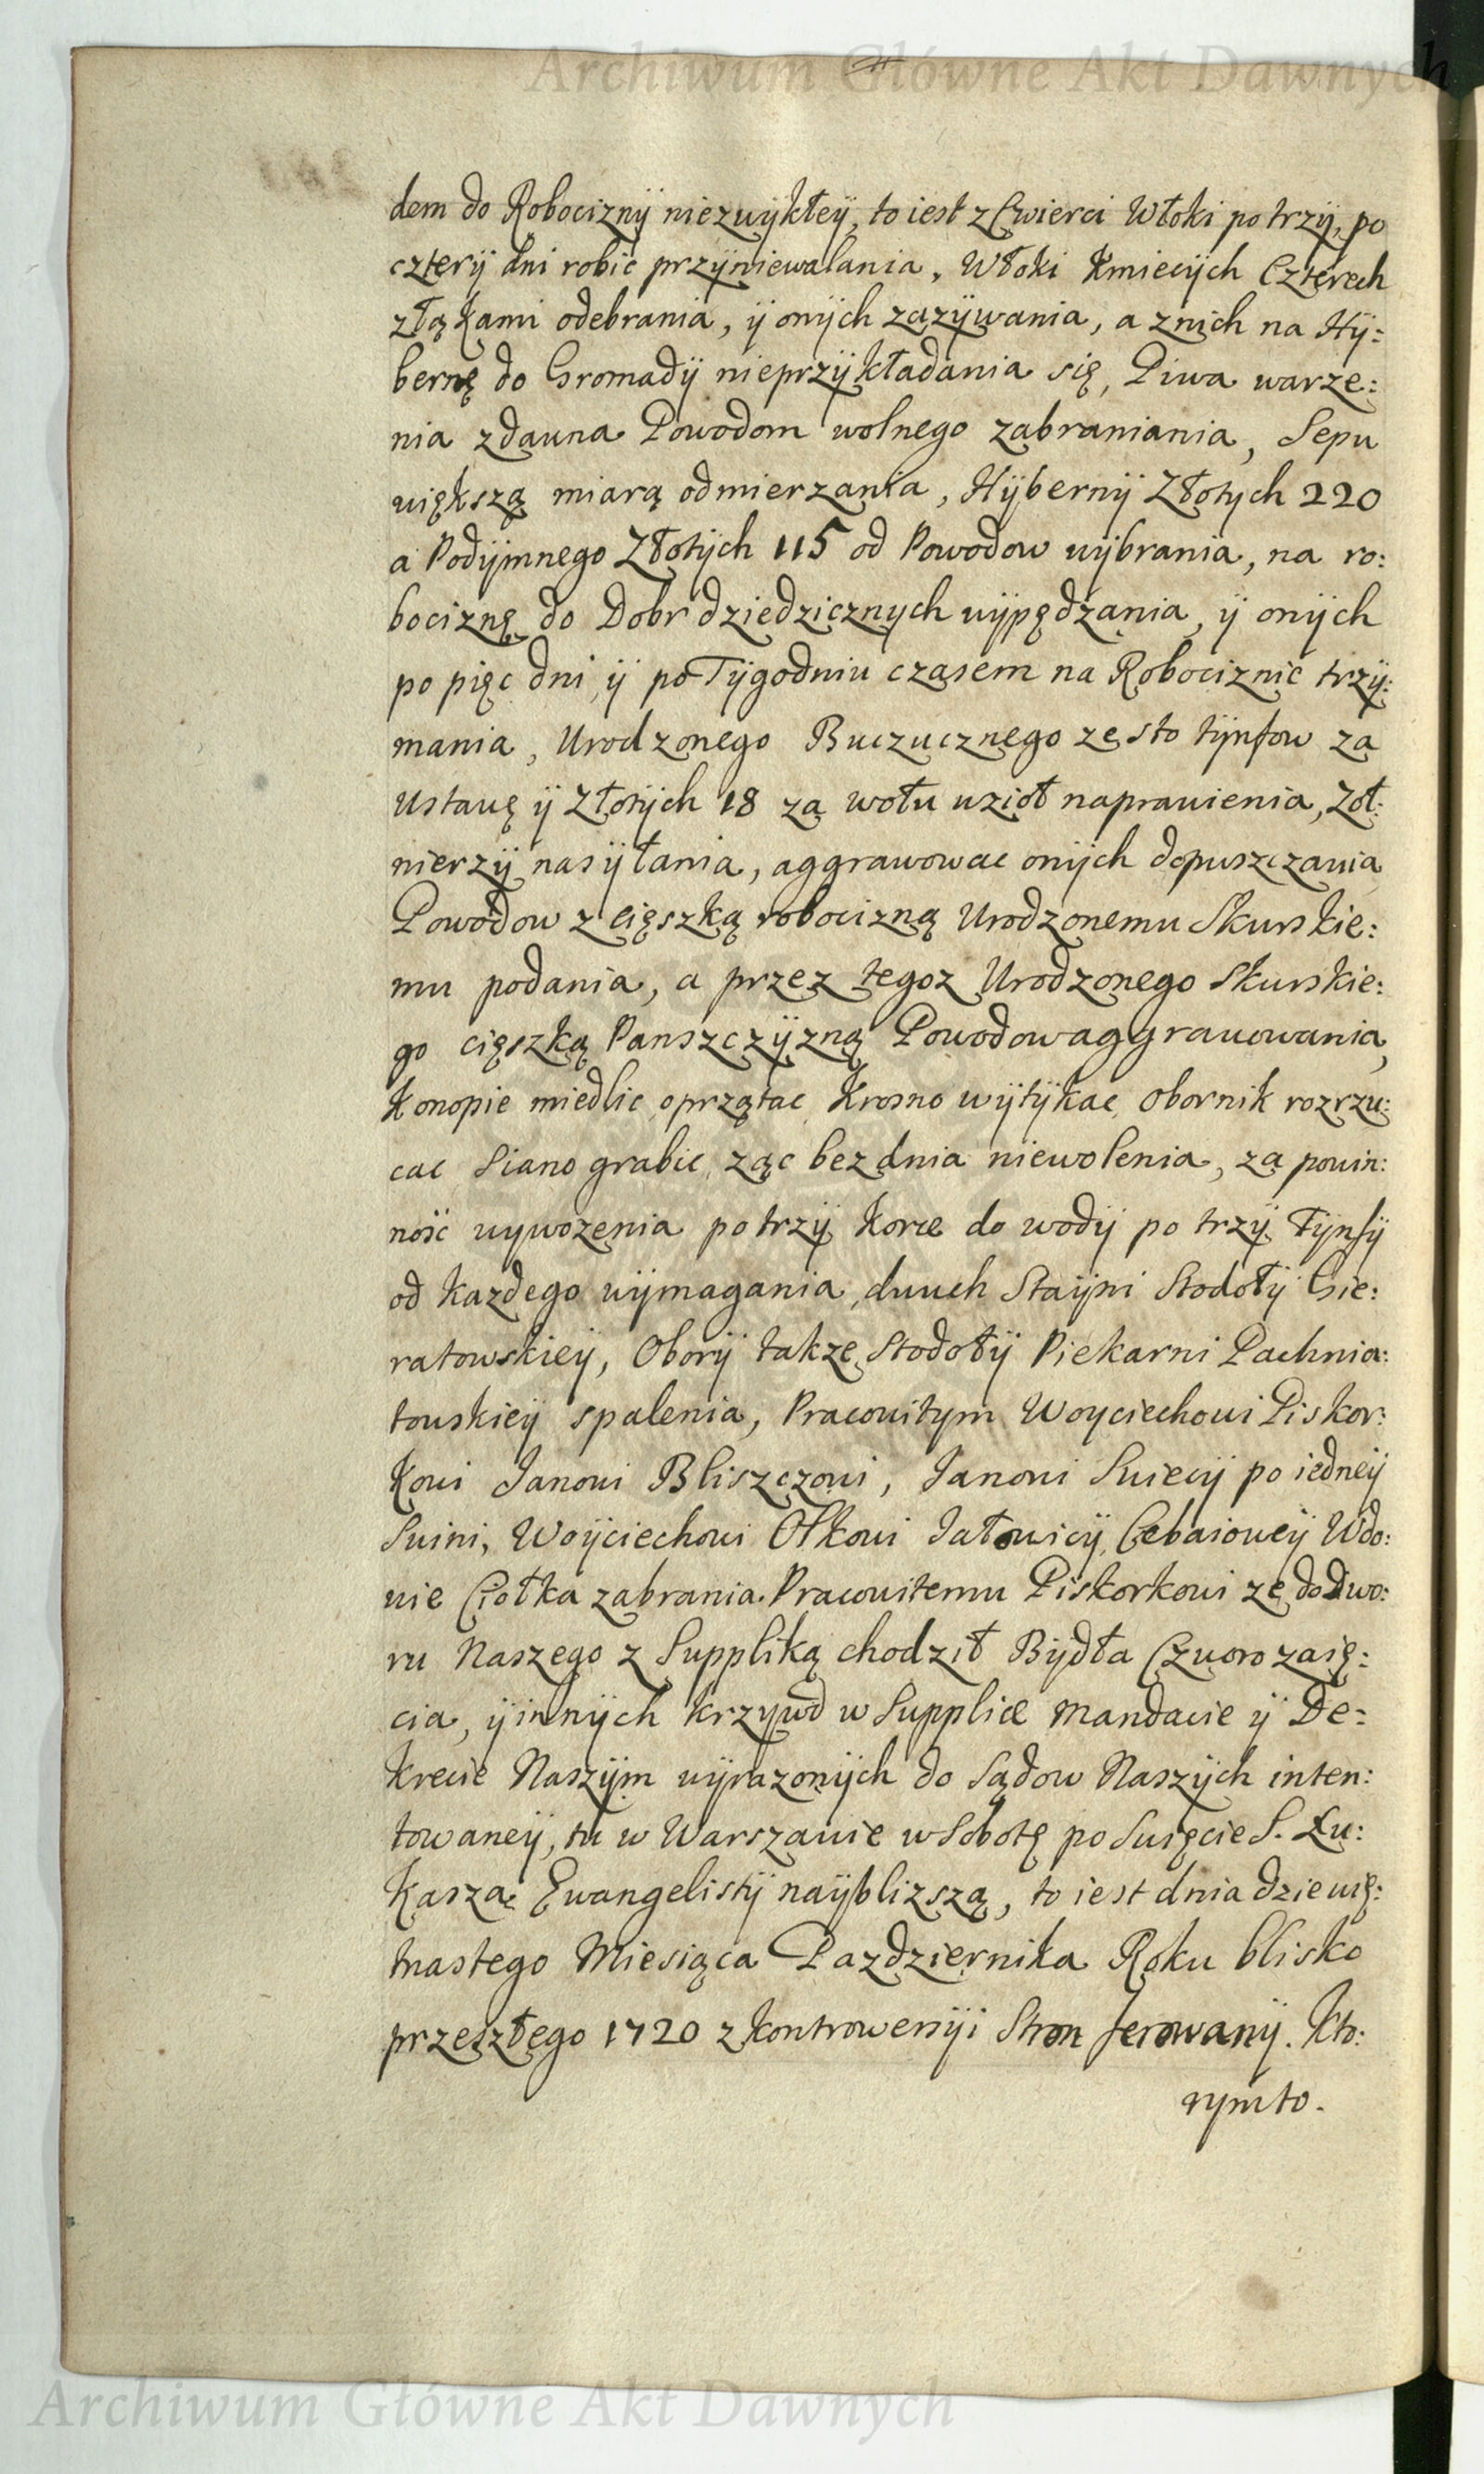 Archiwum Główne Akt Dawnych
dem do Robociznÿ niezwÿkłeÿ, to iest z Cwierci Włoki po trzÿ, po
czterÿ dni robic przÿniewalania, Włoki Kmiecÿch Czterech
z łąkami odebrania, ÿ onÿch zazÿwania, a znich na Hÿ:
bernę do Gromadÿ nieprzÿkładania się, Piwa warze:
nia zdawna Powodom wolnego zabraniania, Sepu
większą miarą odmierzania, Hÿbernÿ Złotych 220
a Podÿmnego Złotÿch 115 od Powodow wÿbrania, na ro:
bociznę do Dobr dziedzicznych wÿpędzania, ÿ onÿch
po pięc dni ÿ po Tÿgodniu czasem na Robociznie trzÿ:
mania, Urodzonego Buczucznego ze sto tÿnfow za
Ustawę ÿ Złotÿch 18 za wołu wzioł naprawienia, Zoł:
nierzÿ nasÿłania, aggrawowac onÿch dopuszczania
Powodow z cięszką robocizną Urodzonemu Skurskie:
mu podania, a przez tegoz Urodzonego Skurskie:
go cięszką Panszczÿzną Powodow aggrawowania,
Konopie miedlic, oprzątac Krosno wÿtÿkac, Obornik rozrzu:
cac Siano grabic, ząc bez dnia niewolenia, za powin:
nosc wywozenia po trzÿ Korce do wodÿ po trzÿ Tÿnfÿ
od kazdego wÿmagania, dwuch Staÿni Stodołÿ Gie:
ratowskieÿ, Oborÿ takze Stodołÿ Piekarni Pachnia:
towskieÿ spalenia, Pracowitym Woyciechowi Piskor:
kowi Janowi Bliszczowi, Janowi Swiecÿ po iedneÿ
Swini, Woÿciechowi Ołkowi Jałowicÿ, Cebaioweÿ Wdo:
wie Ciołka zabrania. Pracowitemu Piskorkowi ze do Dwo:
ru Naszego z Suppliką chodził Bÿdła Czworo zaię:
cia, ÿ innÿch krzywd w Supplice Mandacie ÿ De:
krecie Naszÿm wÿrazonÿch do Sądow Naszÿch inten:
towaneÿ, tu w Warszawie w Sobotę po Swięcie S. Łu:
kasza Ewangelistÿ naÿblizszą, to iest dnia dziewię:
tnastego Miesiąca Pazdziernika Roku blisko
przeszłego 1720 z kontrowersÿi Stron ferowanÿ. Kto:
rymto.
Archiwum Główne Akt Dawnych